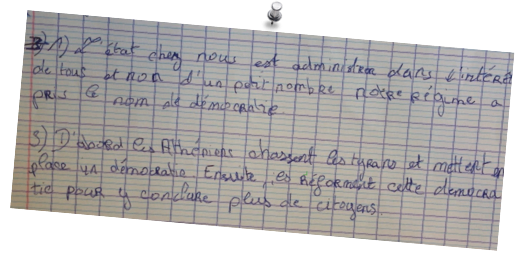 1) L'état chez nous est administrer dans l'intérê
de tous et non d'un petit nombre notre régime a
pris le nom de démocratie
3) D'abord les Athéniens chassent les tyrans et mettent en
place un démocratie Ensuite, es réforment cette democra
tie pour y conclure plus de citoyens.